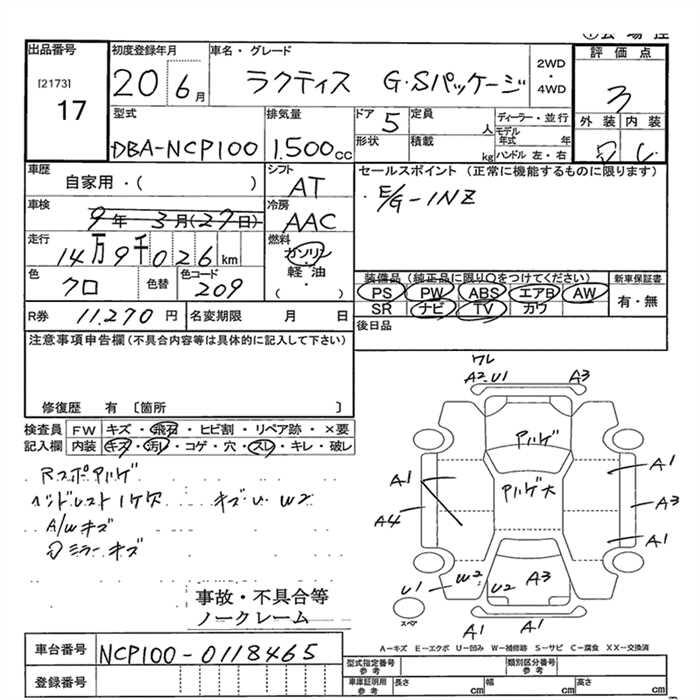 出品番号
[2173]
17
初度登録年月
20 6月
車名・グレード
ラクティス G・Sパッケージ
2WD
・
4WD
評価点
3
外装 内装
型式
DBA-NCP100
排気量
1.500cc
ドア 5
形状
定員 人
積載 kg
ディーラー・並行
モデル年式 年
ハンドル 左・右
車歴
自家用・( )
シフト
AT
車検
9年 3月(27日)
冷房
AAC
走行
14万9千026km
燃料
ガソリン
・
軽油
・
( )
色
クロ
色替
色コード
209
R券 11.270円
名変期限 月 日
セールスポイント(正常に機能するものに限ります)
・E/G-1NZ
装備品(純正品に限り○をつけてください)
PS PW ABS エアB AW
SR ナビ TV カワ
新車保証書
有・無
後日品
注意事項申告欄(不具合内容等は具体的に記入して下さい)
修復歴 有〔箇所 〕
検査員記入欄
FW キズ・飛石・ヒビ割・リペア跡・×要
内装 キズ・汚レ・コゲ・穴・スレ・キレ・破レ
Rスポアハゲ
ヘッドレスト1ケ欠 キズ・U W2
A/Wキズ
ミラーキズ
ワレ
A2 U1 A3
アハゲ
アハゲ大
A1
A4
A1
A3
A1
U1
W2
U2
A3
A1
A1
スペア
事故・不具合等
ノークレーム
A-キズ E-エクボ U-凹み W-補修跡 S-サビ C-腐食 XX-交換済
車台番号 NCP100-0118465
登録番号
型式指定番号
参考
類別区分番号
参考
車庫証明用
参考
長さ cm
幅 cm
高さ cm